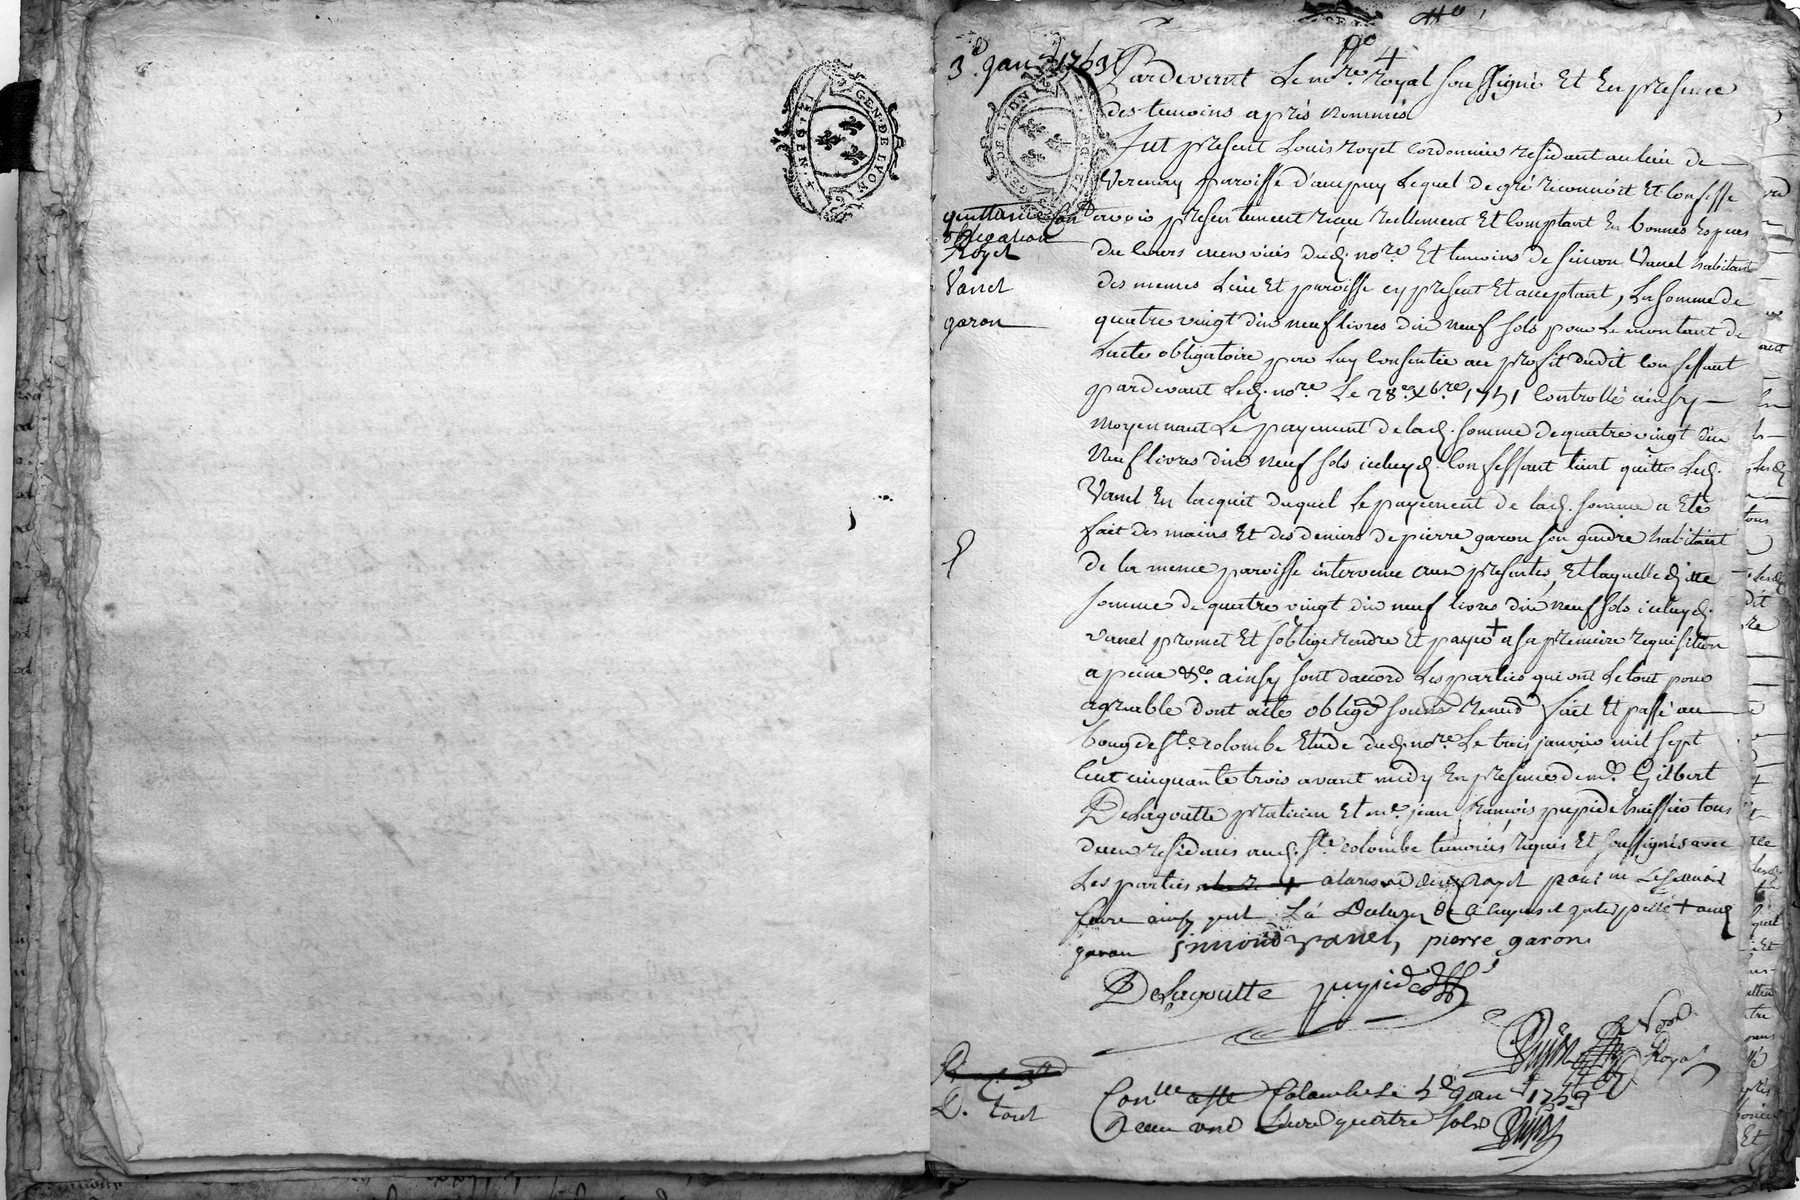 GEN·DE·LYON
GEN·DE LION
No
4
3e. Janr. 1753
Pardevant Le nore. Royal soussigné Et En presence
des temoins apres nommés
fut present Louis royet cordonnier residant au lieu de
Verenay paroisse d'ampuy Lequel de gré reconnoit Et Confesse
avoir presentement reçu reellement Et Comptant En bonnes Especes
du Cours aux vües dud. nore. Et temoins de simon Vanel habitant
des memes Lieu Et paroisse cy present Et acceptant, La somme de
quatre vingt dix neuf livres dix neuf sols pour Le montant de
Lacte obligatoire par Luy Consentie au profit dudit Confessant
pardevant Led. nore. Le 28e. Xbre. 1751 Controllé ainsy
moyennant Le payement de lad. somme de quatre vingt dix
Neuf livres dix neuf sols iceluyd. Confessant tient quitte Led.
Vanel En lacquit duquel Le payement de lad. somme a Eté
fait des mains Et des deniers de pierre garon son gendre habitant
de la meme paroisse intervenu aux presentes, Et laquelle ditte
somme de quatre vingt dix neuf livres dix neuf sols iceluyd.
vanel promet Et soblige rendre Et payer + a sa premiere requisition
a peine &c. ainsy sont daccord Les parties qui ont Le tout pour
agreable dont acte obligé soumis Renoncé fait Et passé au
bourg de Ste. colombe Etude dud. nore. Le trois janvier mil sept
Cent cinquante trois avant midy En presence de me. Gilbert
Delagoutte praticien Et me. jean françois pupide huissier tous
deux residans aud. Ste. colombe temoins requis Et soussignés avec
Les parties a la reserve dud. Royet pour ne Le scavoir
faire ainsy quil La Declaré de Ce Enquis et interpellé + aud.
garon simond vanel, pierre garon
Delagoutte pupide
Royal
Conllé a Ste Colombe Le 5e Janr. 1753
Reçu une Livre quatre sols
quittance Con
obligation
Royet
Vanel
garon
D. tout